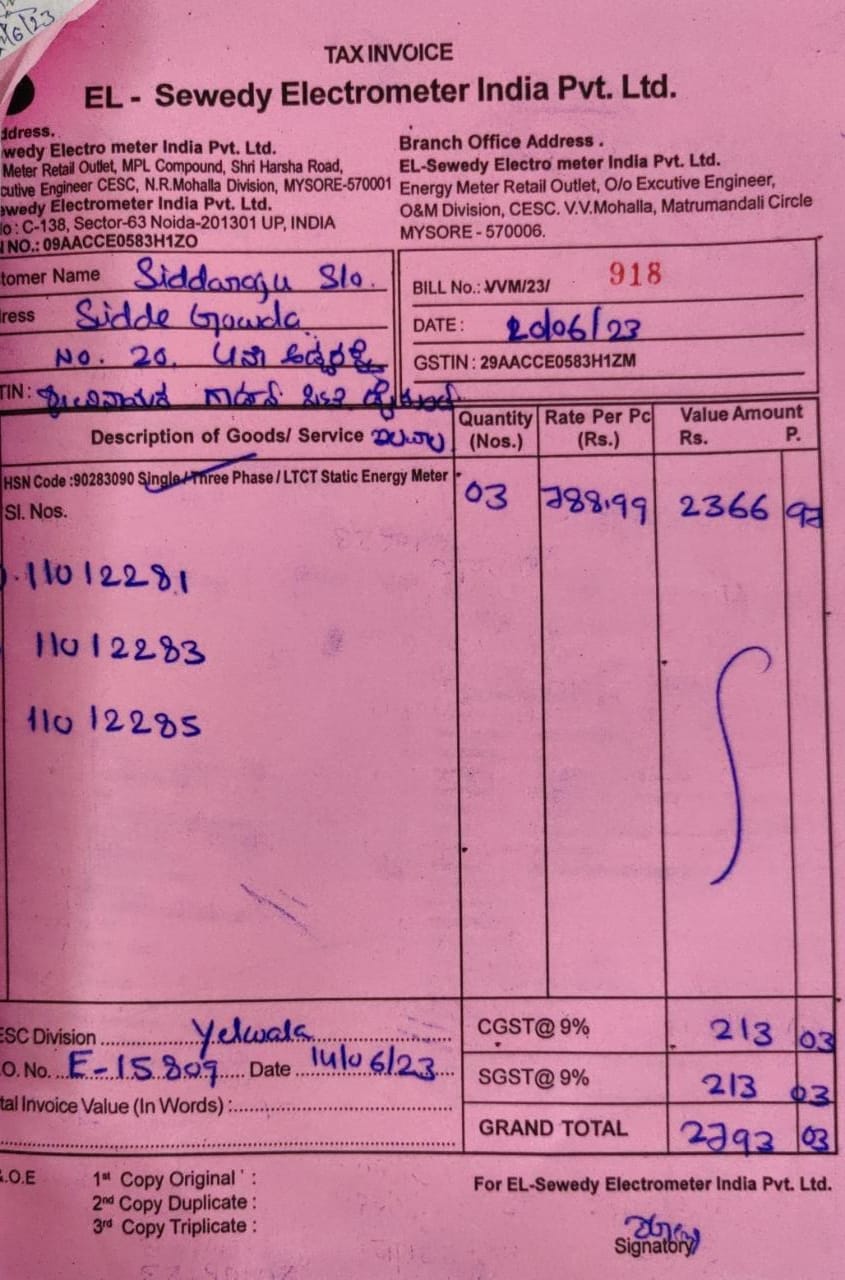 6/23
TAX INVOICE
EL - Sewedy Electrometer India Pvt. Ltd.
ddress.
wedy Electro meter India Pvt. Ltd.
Meter Retail Outlet, MPL Compound, Shri Harsha Road,
cutive Engineer CESC, N.R.Mohalla Division, MYSORE-570001
ewedy Electrometer India Pvt. Ltd.
o : C-138, Sector-63 Noida-201301 UP, INDIA
NO.: 09AACCE0583H1ZO
Branch Office Address .
EL-Sewedy Electro meter India Pvt. Ltd.
Energy Meter Retail Outlet, O/o Excutive Engineer,
O&M Division, CESC. V.V.Mohalla, Matrumandali Circle
MYSORE - 570006.
tomer Name Siddaraju S/o.
ress Sidde Gowda
No. 20,
TIN :
BILL No.: VVM/23/ 918
DATE : 20/06/23
GSTIN : 29AACCE0583H1ZM
Description of Goods/ Service
Quantity (Nos.)
Rate Per Pc (Rs.)
Value Amount Rs. P.
HSN Code :90283090 Single/Three Phase / LTCT Static Energy Meter
03 788.99 2366 97
Sl. Nos.
11012281
11012283
11012285
ESC Division Yelwala
O. No. E-15809 Date 14/06/23
tal Invoice Value (In Words) :
CGST@ 9% 213 03
SGST@ 9% 213 03
GRAND TOTAL 2793 03
.O.E
1st Copy Original :
2nd Copy Duplicate :
3rd Copy Triplicate :
For EL-Sewedy Electrometer India Pvt. Ltd.
Signatory